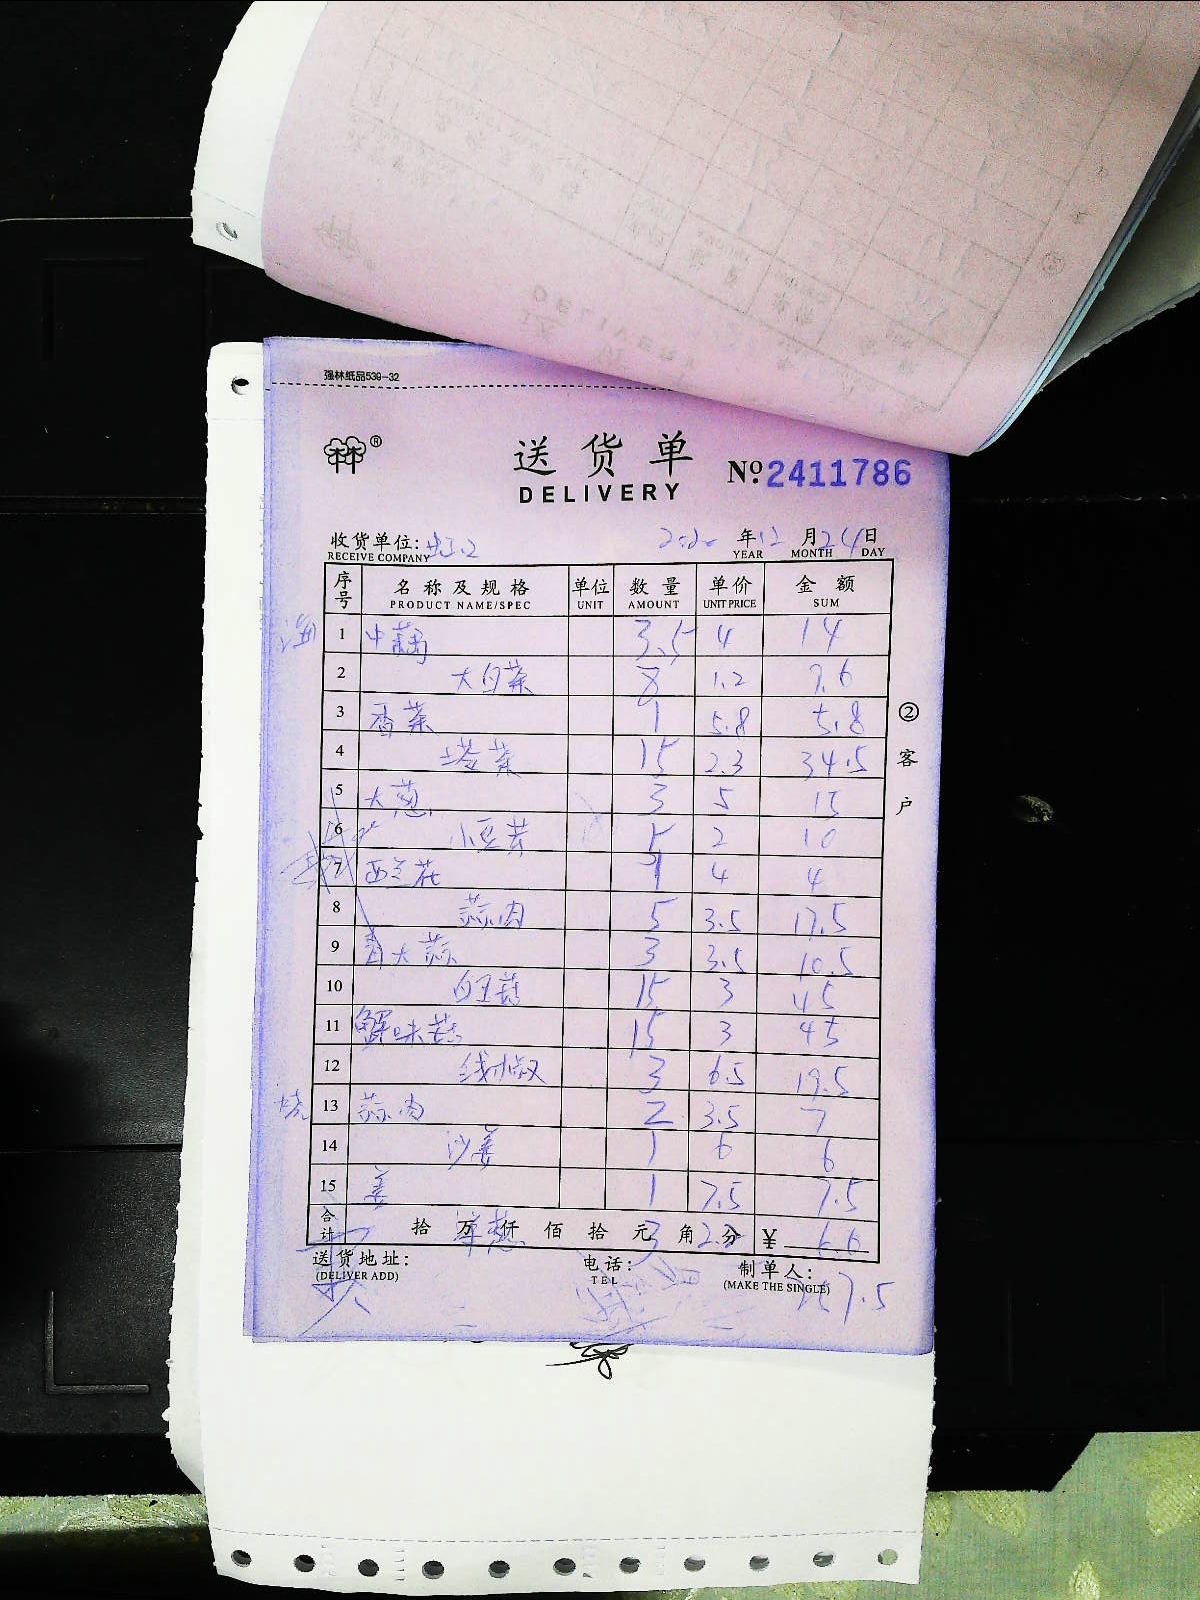 强林纸品539-32
林®
送货单
DELIVERY
№ 2411786
收货单位: 2020 年 12 月 24 日
RECEIVE COMPANY YEAR MONTH DAY
序号 名称及规格 单位 数量 单价 金额
PRODUCT NAME/SPEC UNIT AMOUNT UNIT PRICE SUM
1 中藕 3.5 4 14
2 大白菜 8 1.2 9.6
3 香菜 1 5.8 5.8
4 塔菜 15 2.3 34.5
5 大葱 3 5 15
6 小豆芽 5 2 10
7 西兰花 1 4 4
8 蒜肉 5 3.5 17.5
9 青大蒜 3 3.5 10.5
10 白玉菇 15 3 45
11 蟹味菇 15 3 45
12 线椒 3 6.5 19.5
烧 13 蒜肉 2 3.5 7
14 沙姜 1 6 6
15 姜 1 7.5 7.5
合计 拾 万 仟 佰 拾 元 角 分 ¥
葱 3 2.2 6.6
送货地址: 电话: 制单人:
(DELIVER ADD) TEL (MAKE THE SINGLE)
257.5
②客户